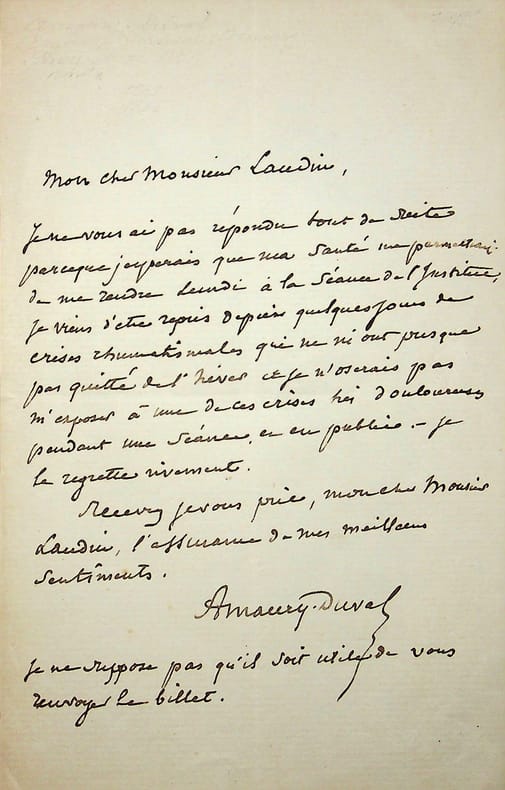 Mon cher Monsieur Laudin,
Je ne vous ai pas répondu tout de suite
parceque j'esperais que ma santé me permettrait
de me rendre Lundi à la Séance de l'Institut,
je viens d'être repris depuis quelques jours de
crises rhumatismales qui ne m'ont presque
pas quitté de l'hiver et je n'oserais pas
m'exposer à une de ces crises très douloureuses
pendant une Séance, et en public. - je
le regrette vivement.
Recevez je vous prie, mon cher Monsieur
Laudin, l'assurance de mes meilleurs
sentiments.
Amaury-Duval
Je ne suppose pas qu'il soit utile de vous
renvoyer le billet.